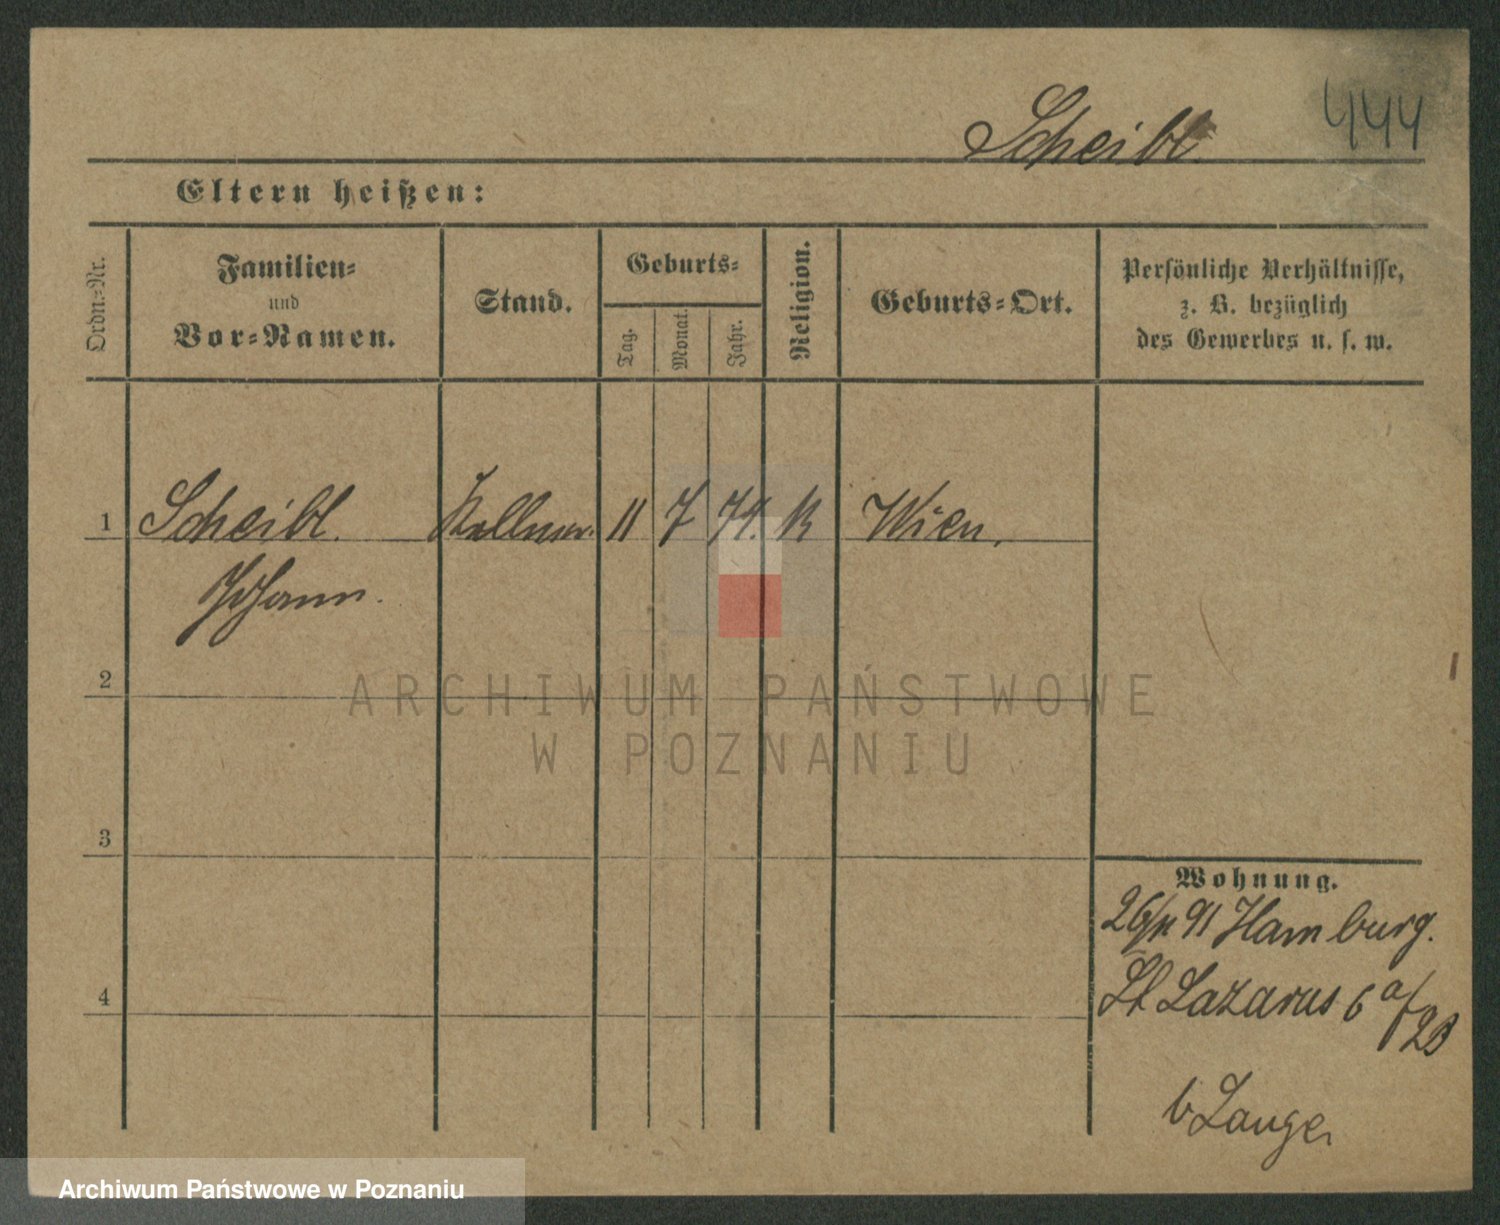 444
Scheibl
Eltern heißen:
Ordn=Nr.
Familien=
und
Vor=Namen.
Stand.
Geburts=
Tag.
Monat.
Jahr.
Religion.
Geburts=Ort.
Persönliche Verhältnisse,
z. B. bezüglich
des Gewerbes u. s. w.
1 Scheibl. Kellner. 11 7 74. K Wien.
Johann.
2
ARCHIWUM PAŃSTWOWE
W POZNANIU
3
Wohnung.
91 Hamburg.
4
St Lazarus 6 a/
b Lange
Archiwum Państwowe w Poznaniu